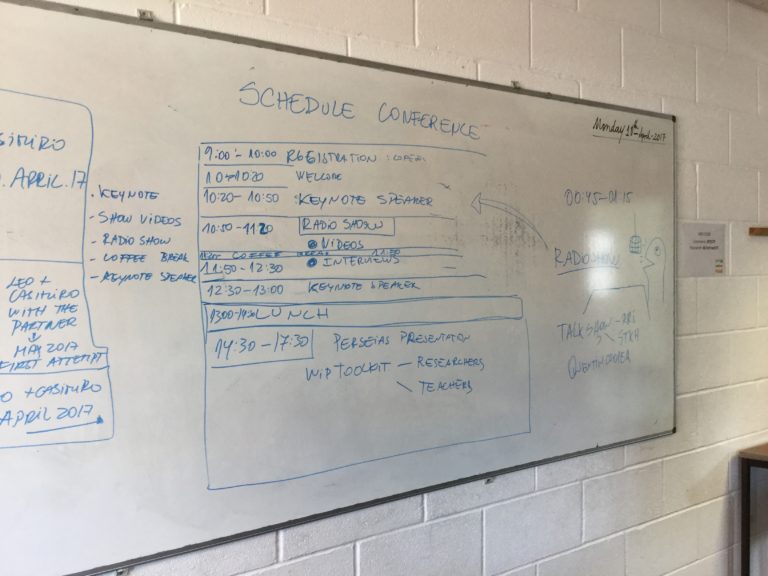 SCHEDULE CONFERENCE
Monday 10th April-2017
ASIMIRO
APRIL.17
LEO +
CASIMIRO
WITH THE
PARTNER
MAY 2017
FIRST ATTEMPT
O + CASIMIRO
APRIL 2017
- KEYNOTE
- SHOW VIDEOS
- RADIO SHOW
- COFFEE BREAK
- KEYNOTE SPEAKER
9:00 - 10:00 REGISTRATION :
10 - 10:20 WELCOME
10:20 - 10:50 : KEYNOTE SPEAKER
10:50 - 11:20 RADIO SHOW
• VIDEOS
COFFEE BREAK 11:50
11:50 - 12:30 • INTERVIEWS
12:30 - 13:00 KEYNOTE SPEAKER
13:00-14:30 LUNCH
14:30 - 17:30 PERSEIAS PRESENTATION
WIP TOOLKIT - RESEARCHERS
\ TEACHERS
00:45-01:15
RADIOSHOW
TALKSHOW - RRI
\ STKH
QUENTIN COOPER